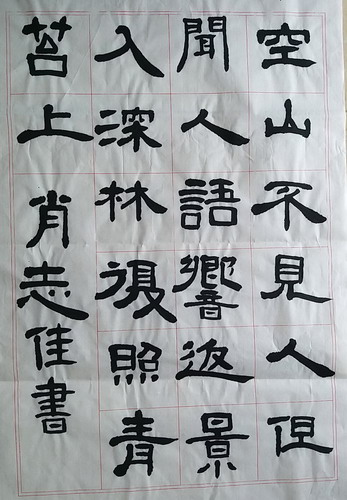 空山不見人但
聞人語響返景
入深林復照青
苔上 肖志佳書